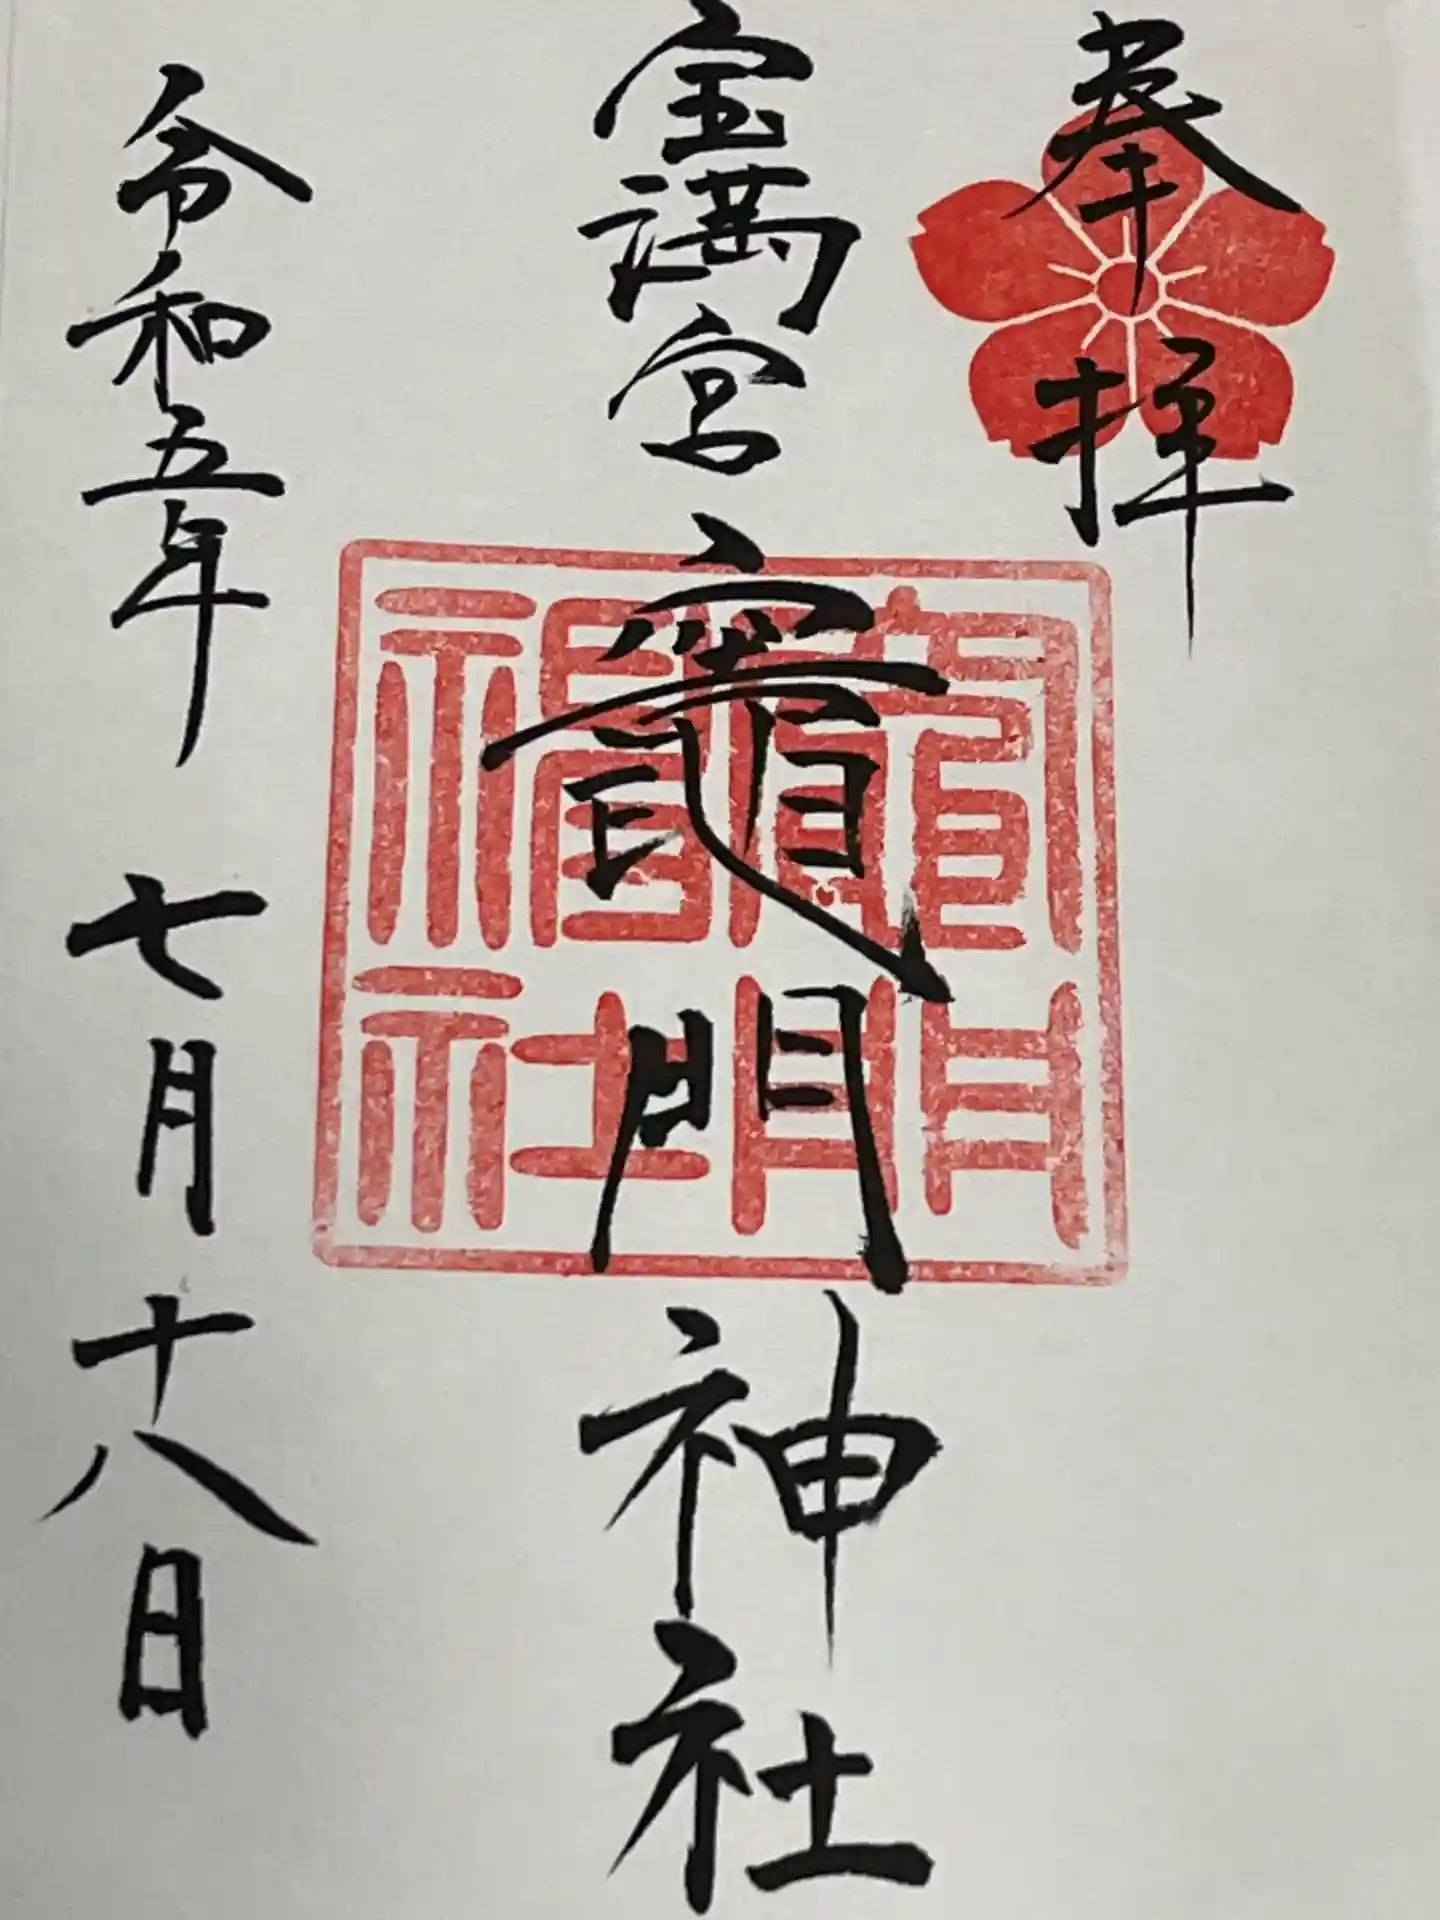 奉拝
宝満宮竈門神社
令和五年七月十八日
竈門
神社